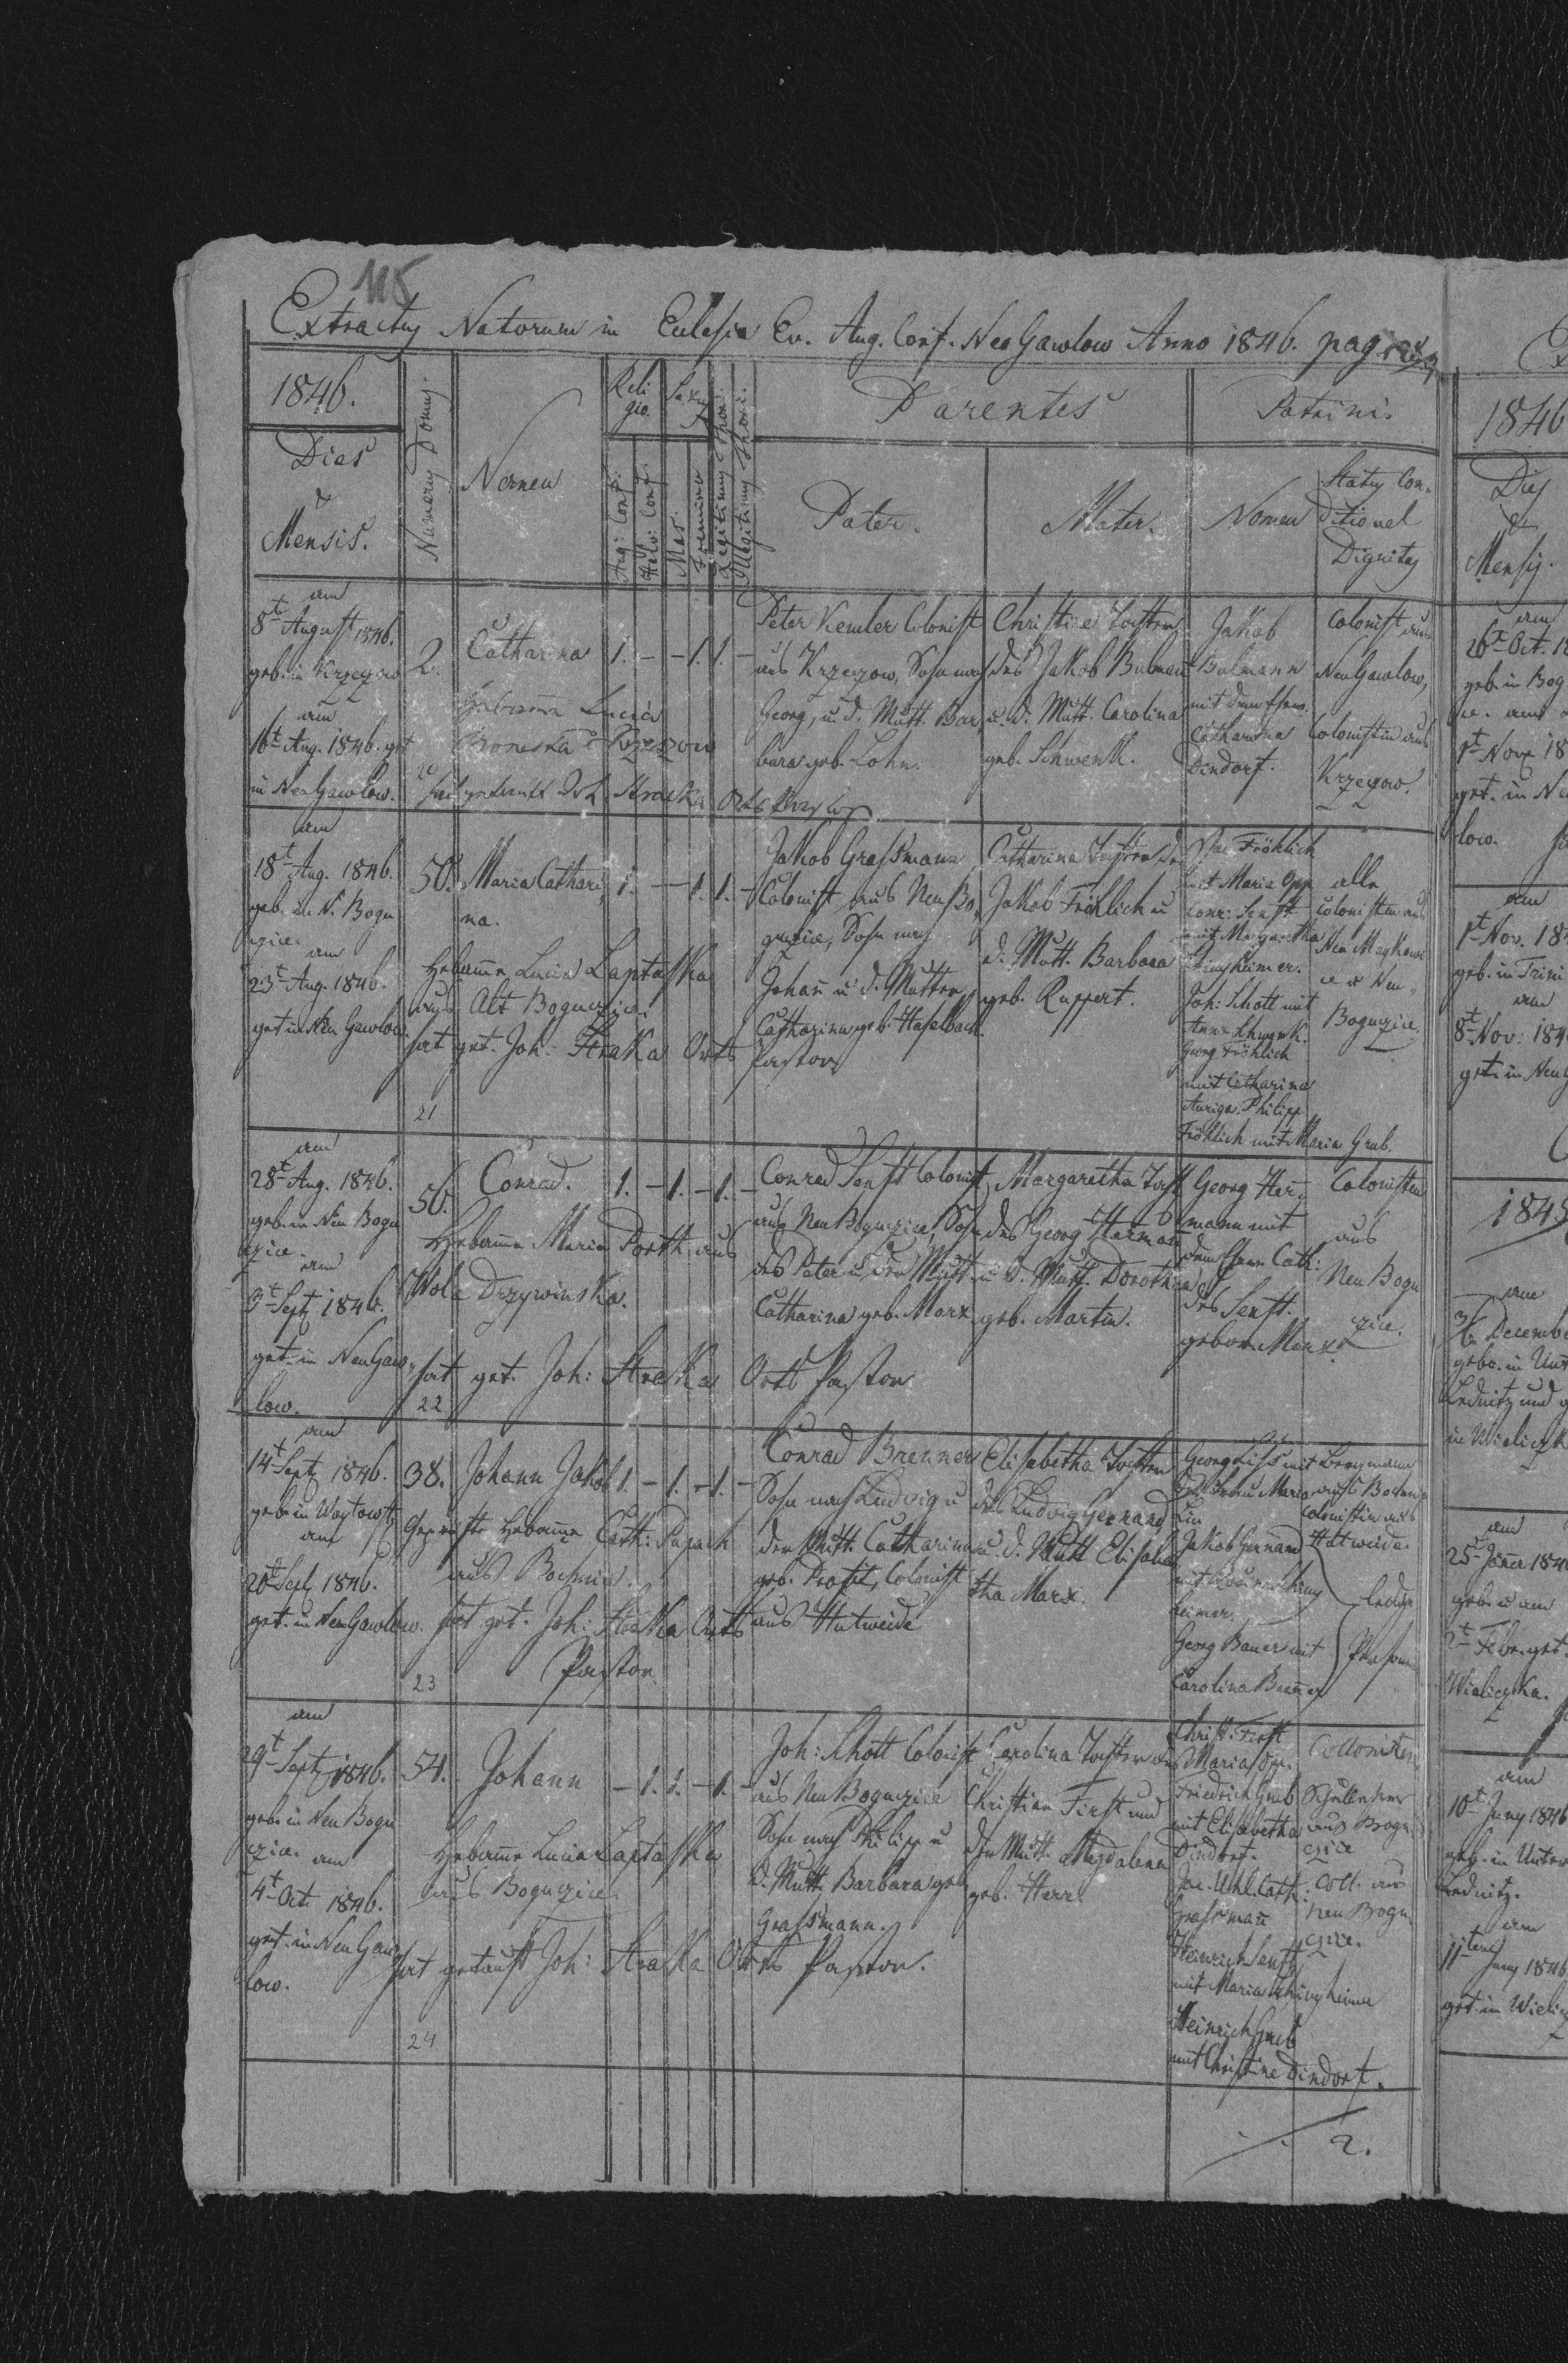 115
Extractus Natorum in Eclesia Ev. Aug. Conf. NeoGawlow Anno 1846. pag
1846.
Dies
&
Mensis.
Numerus Domus.
Nomen
Reli
gio.
Sexus
Aug: Conf:
Helv: Conf.
Mas.
Foemina
Legitimi Thori.
Illegitimi Thori.
Parentes
Pater.
Mater.
Patrini.
Nomen
Status Con-
ditionel
Dignitas
am
8t August 1846.
geb. in Krzeczow
am
16t Aug. 1846. get
in NeuGawlow.
2.
Catharina
1. - - 1. 1. -
Hebamme Lucia
20
hat getauft Joh. Straka Orts Pastor
Peter Kemler Colonist
aus Krzeczow, Sohn nach
Georg, u. d. Mutt. Bar
bara geb. Lohn.
Christine Tochter
des Jakob Bulmann
u. d. Mutt. Carolina
geb. Schwenk.
Jakob
Bulmann
mit
Catharina
Dindorf.
Colonist aus
NeuGawlow,
Colonistin aus
Krzeczow.
am
18t Aug. 1846.
geb. in N. Bogu
czice
am
23t Aug. 1846.
get in Neu Gawlow.
50.
Maria Cathari
na.
1. - - 1. 1. -
Hebamme Lucia Laptaska
aus Alt Boguczice
hat get. Joh: Straka Orts Pastor
21
Jakob Grassmann
Colonist aus Neu Bo
guczice, Sohn nach
Johann u. d. Mutter
Catharina geb. Haselbach.
Catharina Tochter des
Jakob Fröhlich u
d. Mutt. Barbara
geb. Ruppert.
Fröhlich
mit Maria Opp
Conr: Senft
mit Margaretha
Joh: Schott mit
Anna Schwenk.
Georg Fröhlich
mit Catharina
Philipp
Fröhlich mit Maria Grub.
alle
Colonisten aus
Neu
Boguczice.
am
28t Aug. 1846.
geb. in Neu Bogu
czice
am
3t Sept 1846.
get. in NeuGaw
low.
56.
Conrad.
1. - 1. - 1. -
Hebamme Maria Porth aus
Wola Drzywinska.
hat get. Joh: Straka Orts Pastor
22
Conrad Senft Colonist
aus Neu Boguczice, Sohn
des Peter u. der Mutt
Catharina geb. Marx
Margaretha Tocht
des Georg Herman
u. d. Mutt. Dorothea
geb. Martin.
Georg Her
mann mit
Cath:
des Senft.
geborn. Marx
Colonisten
aus
Neu Bogu
czice.
am
14t Sept 1846.
geb. in
am
20t Sept 1846.
get. in NeuGawlow.
38.
Johann Jakob
1. - 1. - 1. -
Geprüfte Hebamme Cath:
aus Bochnia.
hat get. Joh: Straka Orts
Pastor
23
Conrad Brenner
Sohn nach Ludwig u
der Mutt. Catharina
geb. Profit, Colonist
aus Hutweide
Elisabetha Tochter
des Ludwig Gernand
u. d. Mutt Elisabe
tha Marx.
Georg Liss mit
Maria
Jakob Gernand
heimer.
Georg Bauer mit
Carolina Brenner
Bergmann
aus Bochnia
Colonistin aus
Hutweide.
ledige
Personen
am
29t Sept 1846.
geb. in Neu Bogu
czice. am
4t Oct. 1846.
get. in NeuGaw
low.
54.
Johann
- 1. 1. - 1. -
Hebamme Lucia Laptaska
aus Boguczice
hat getauft Joh: Straka Orts Pastor.
24
Joh: Schott Colonist
aus Neu Boguczice
Sohn nach Philipp u
d. Mutt. Barbara geb
Grassmann.
Carolina Tochter des
Christian First und
der Mutt. Magdalena
geb. Herr.
Christ: First
Maria Opp.
Friedrich Grub
mit Elisabetha
Dindorf.
Jac. Uhl. Cath:
Grassmann
Heinrich Senft
mit Maria
Heinrich Grub
mit Christine Dindorf.
Collonisten
Schullehrer
aus Bogu
czice
Coll. aus
Neu Bogu
czice.
2.
1846
Dies
&
Mensis.
am
26t Oct.
geb. in Bog
am
1t Nov. 18
get. in Ne
low.
am
1t Nov. 18
geb. in Trini
am
8t Nov: 184
get. in Neu
1845
am
Decembe
gebo. in Unt
Lednitz und
in Wieliczk
am
25t Jäner 184
geb. u am
2t Febr. get.
Wieliczka.
am
10t Juny 1846
geb. in Unter
Lednitz.
am
11ten Juny 1846
get. in Wielicz